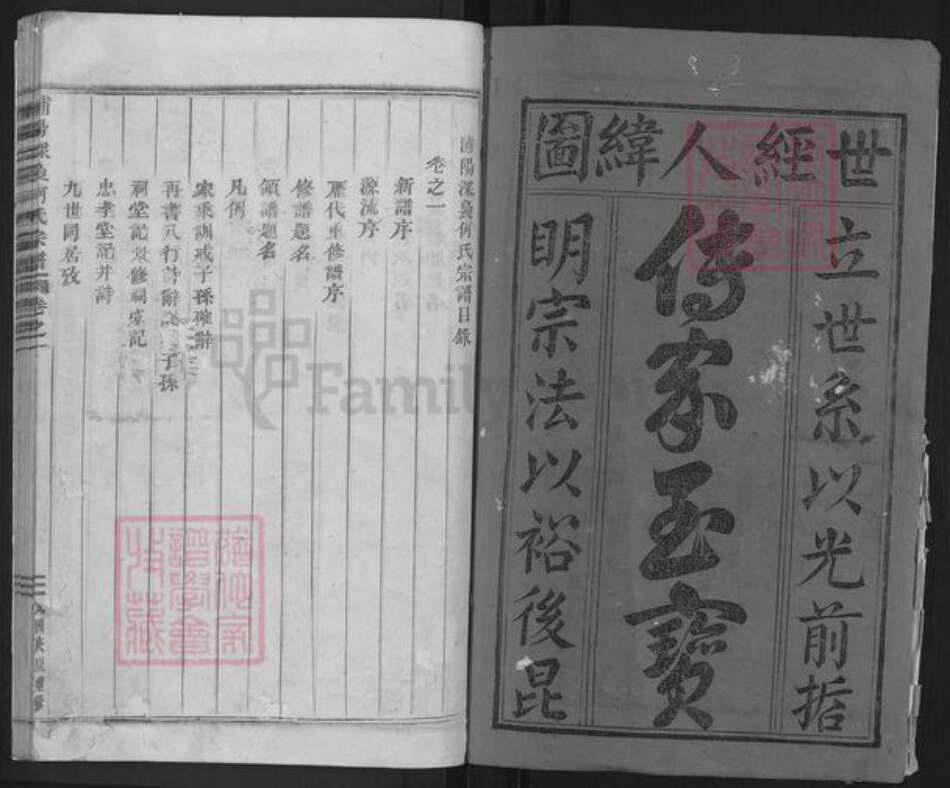 世經人緯圖
立世系以光前哲
傳家至寶
明宗法以裕後昆
浦陽深裊何氏宗譜目錄
卷之一
新譜序
源流序
歷代重修譜序
修譜題名
領譜題名
凡例
家乘訓戒子孫確辭
再書八行詩辭 子孫
祠堂記 修祠堂記
忠孝堂記并詩
九世同居攷
氏宗譜 卷之一
譜學會
收藏
Family